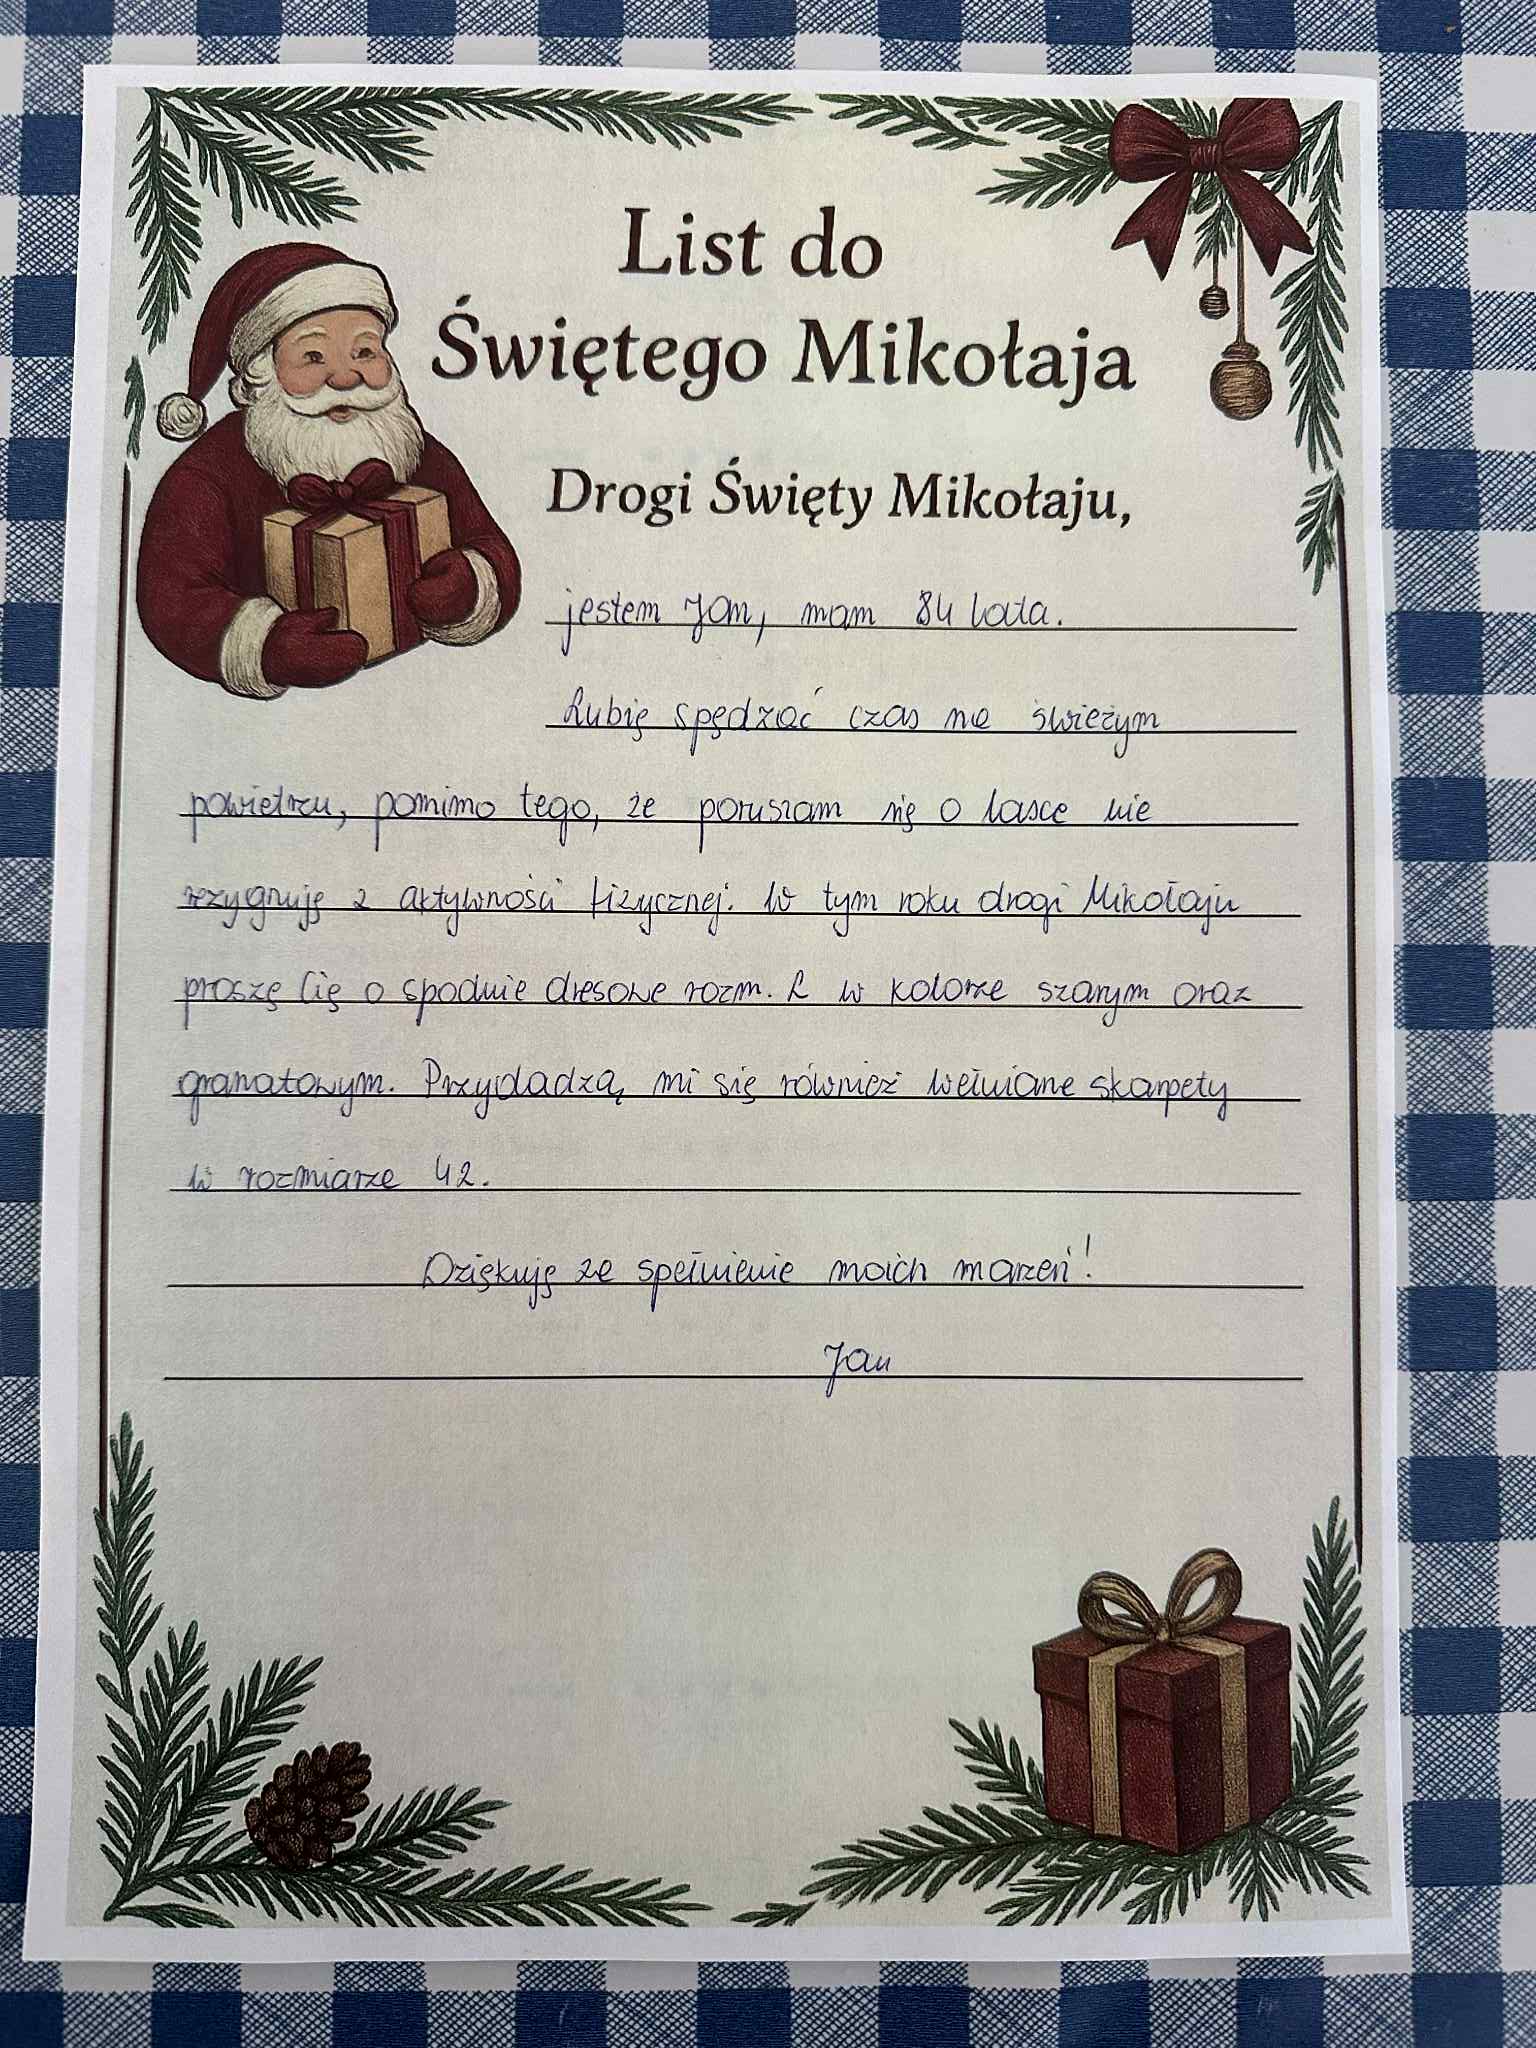 List do
Świętego Mikołaja
Drogi Święty Mikołaju,
jestem Jan, mam 84 lata.
Lubię spędzać czas na świeżym
powietrzu, pomimo tego, że poruszam się o lasce nie
rezygnuję z aktywności fizycznej. W tym roku drogi Mikołaju
proszę Cię o spodnie dresowe rozm. L w kolorze szarym oraz
granatowym. Przydadzą mi się również wełniane skarpety
w rozmiarze 42.
Dziękuję ze spełnienie moich marzeń!
Jan